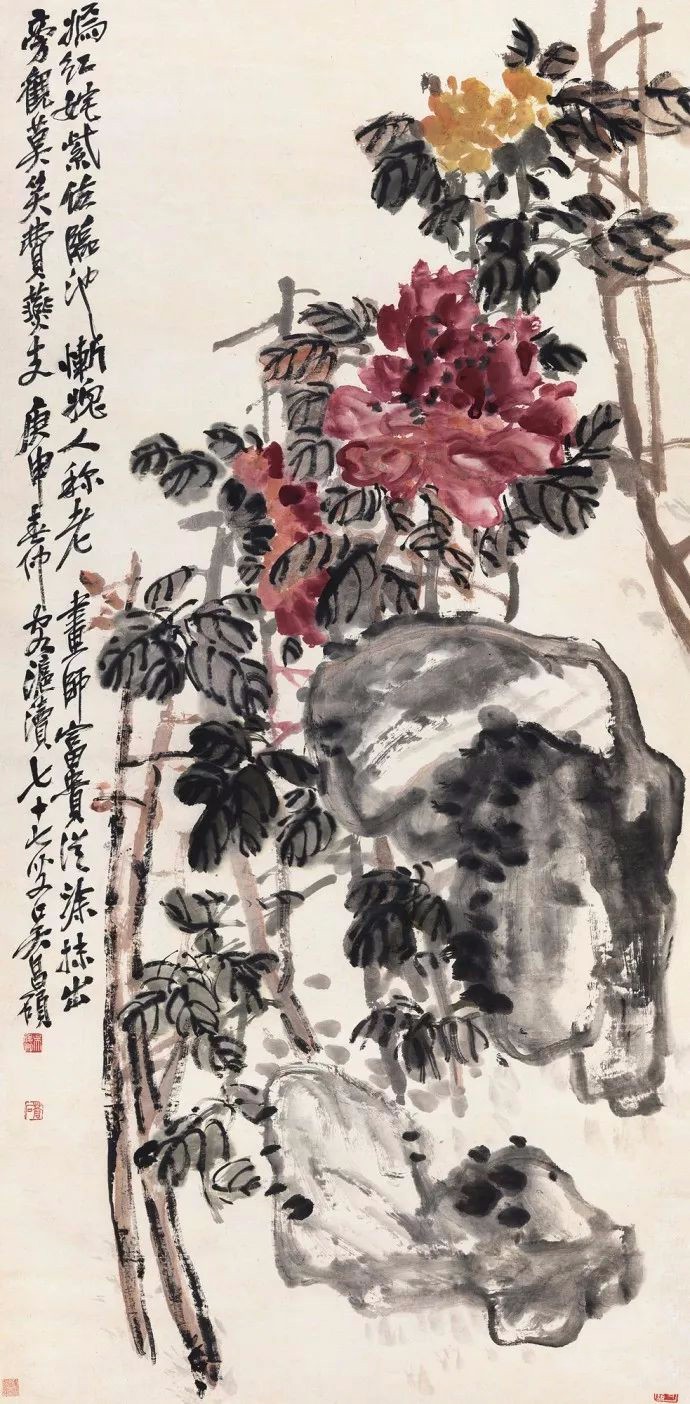 嫣紅姹紫臨池慚愧人称老畫師富貴從涂抹出
旁觀莫笑費燕支庚申春仲客滬瀆七十七歲吳昌碩